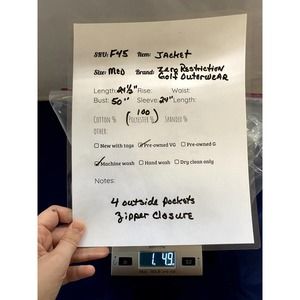 SKU: F45 Item: JACKET
Size: MED Brand: Zero Restriction
Golf OuterweAR
Length: 29½" Rise: Waist:
Bust: 50" Sleeve: 24" Length:
COTTON % (100 POLYESTER %) SPANDEX %
OTHER:
New with tags Pre-owned VG Pre-owned G
Machine wash Hand wash Dry clean only
Notes:
4 outside pockets
Zipper closure
1. 49